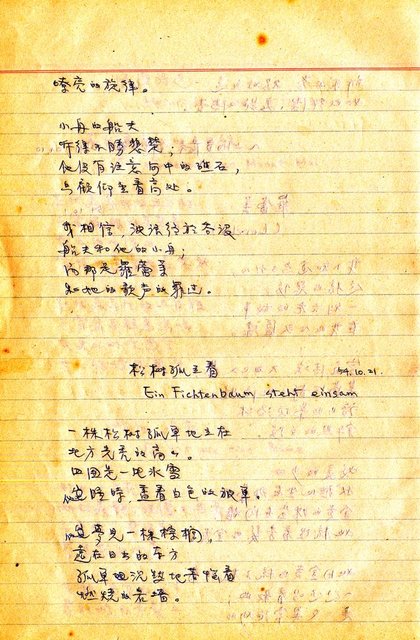 嘹亮的旋律。
小舟的船夫
听得不勝悲楚；
他没有注意河中的礁石，
只顧仰望着高处。
我相信，波浪終於吞没
船夫和他的小舟；
而那是羅蕾萊
和她的歌声的罪过。
松树孤立着 54.10.21.
Ein Fichtenbaum steht einsam
一株松树孤单地立在
北方光秃的高山。
四周是一片冰雪
他瞌睡時，蓋着白色的被單
他夢見一株棕櫚，
遠在日出的东方
孤单而沉默地悲悼着
燃烧的悬墙。